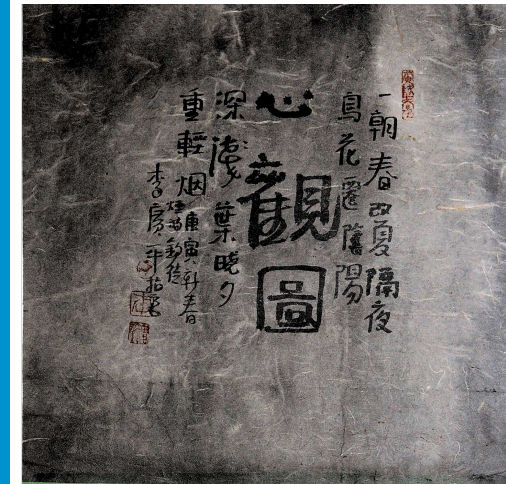 一朝春改夏隔夜
鳥花遷陰陽
心觀圖
深淺葉曉夕
重輕烟
庚寅新春
李廣平